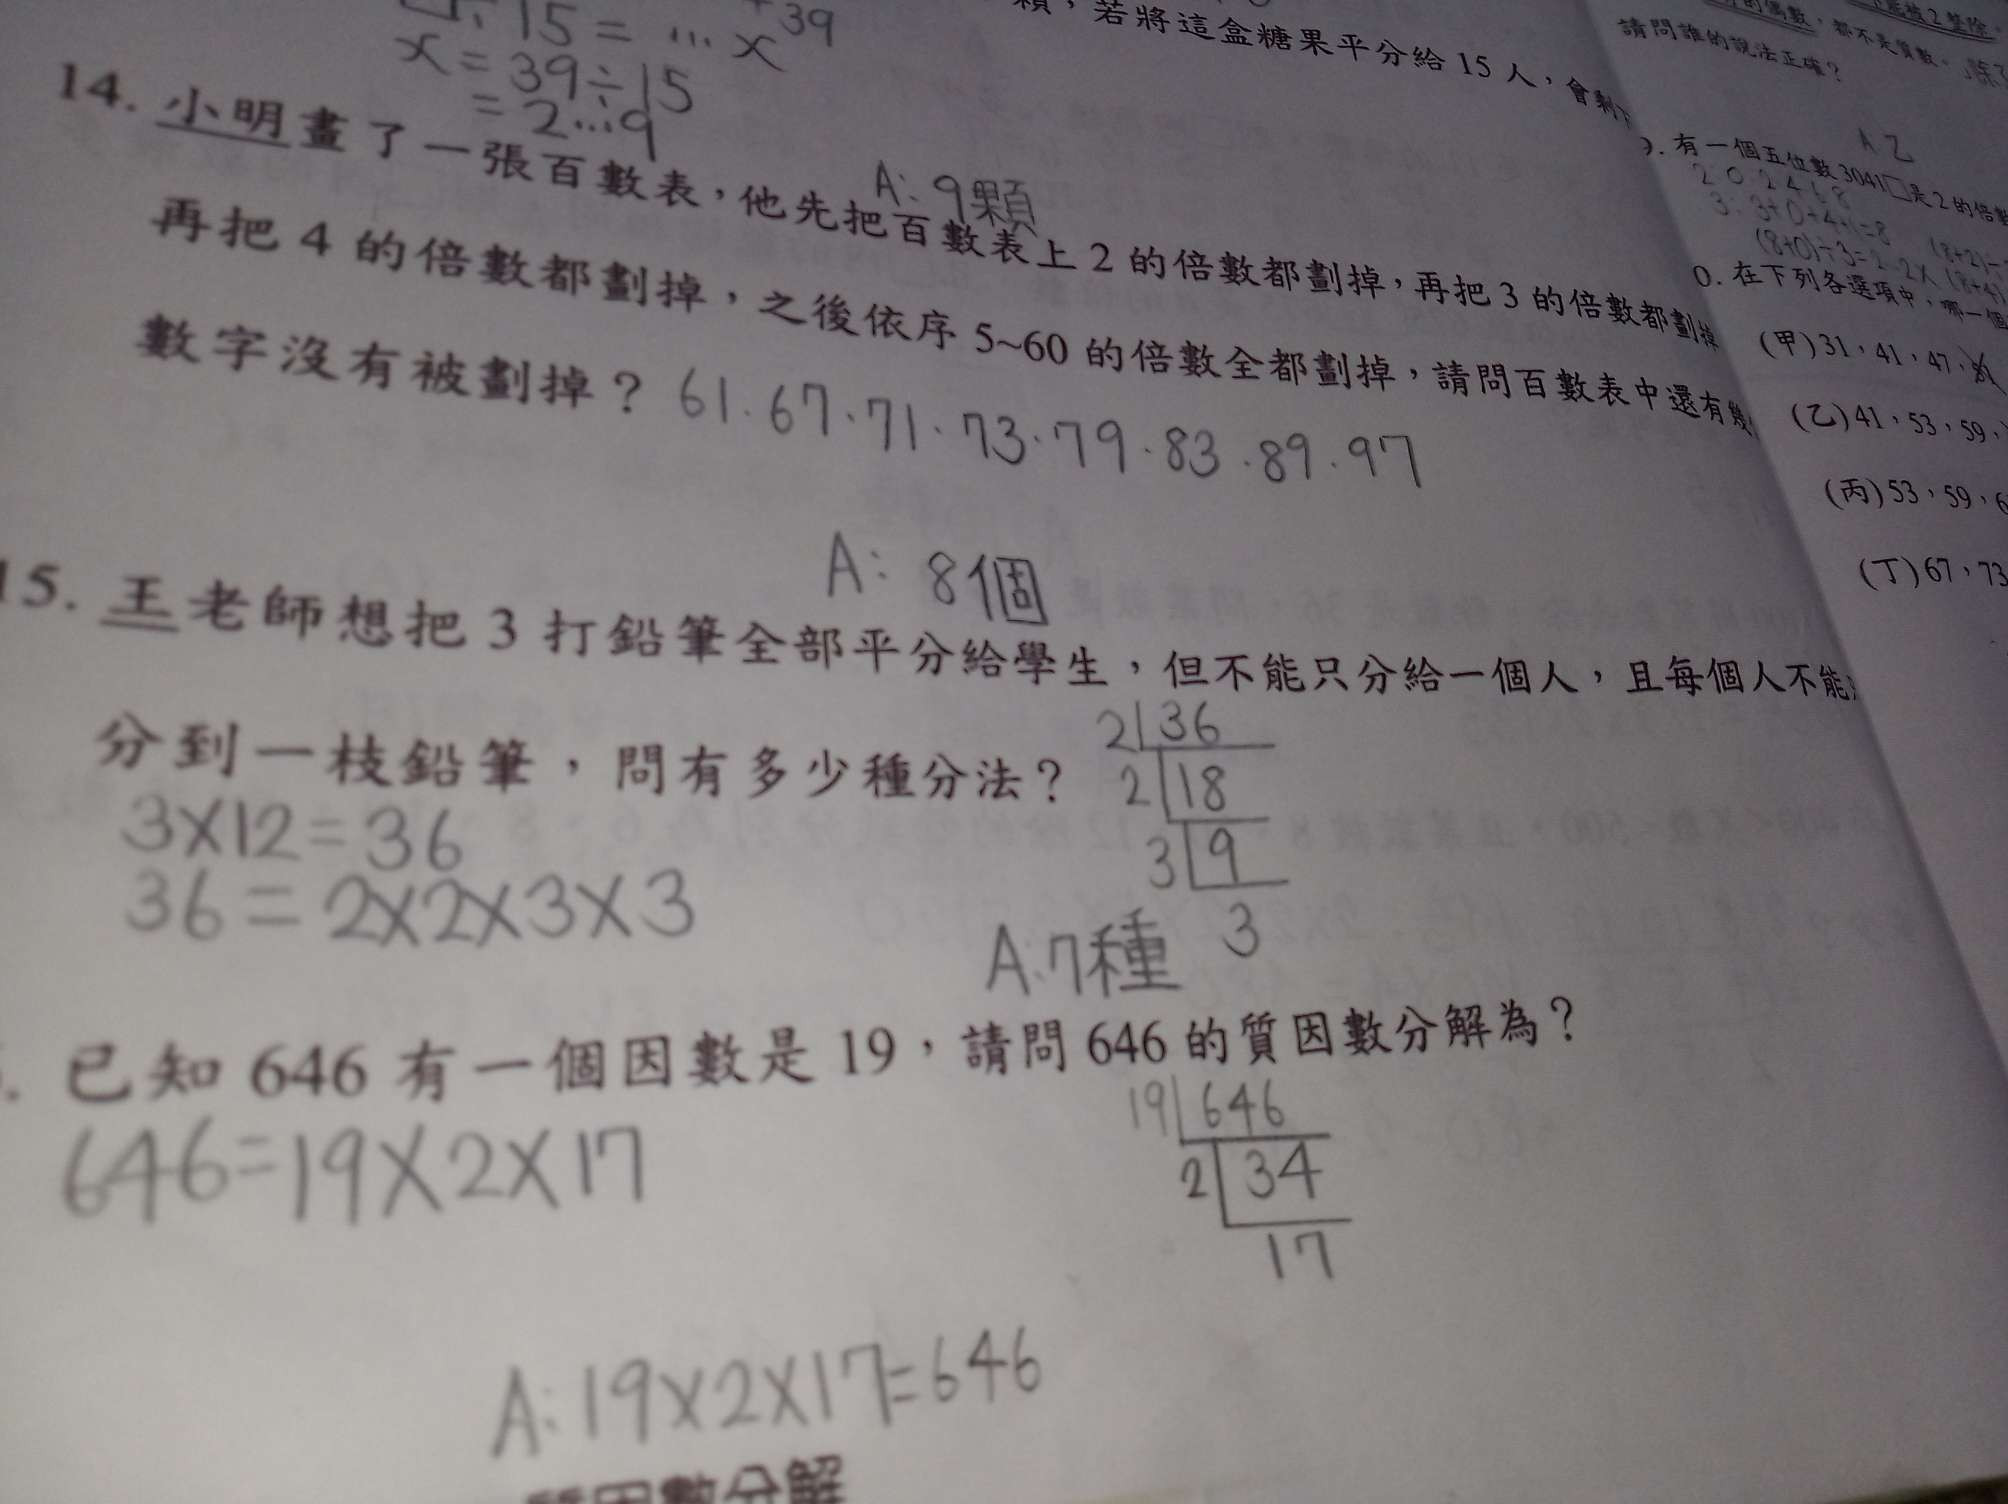 15 = … x +39
x = 39÷15
= 2…9
顆，若將這盒糖果平分給 15 人，會剩
A: 9顆
14. 小明畫了一張百數表，他先把百數表上 2 的倍數都劃掉，再把 3 的倍數都劃掉
再把 4 的倍數都劃掉，之後依序 5~60 的倍數全都劃掉，請問百數表中還有幾
數字沒有被劃掉？ 61.67.71.73.79.83.89.97
A: 8個
15. 王老師想把 3 打鉛筆全部平分給學生，但不能只分給一個人，且每個人不能
分到一枝鉛筆，問有多少種分法？
3×12=36
36=2×2×3×3
2 36
2 18
3 9
3
A:7種
. 已知 646 有一個因數是 19，請問 646 的質因數分解為？
646=19×2×17
19 646
2 34
17
A:19×2×17=646
質因數分解
的偶數，都不是質數。
請問誰的說法正確？
A 乙
. 有一個五位數3041□是2的倍數
2 0 2 4 6 8
3: 3+0+4+1=8
(8+0)÷3=2…2×
0. 在下列各選項中，哪一個
(甲)31，41，47，
(乙)41，53，59，
(丙)53，59，6
(丁)67，73